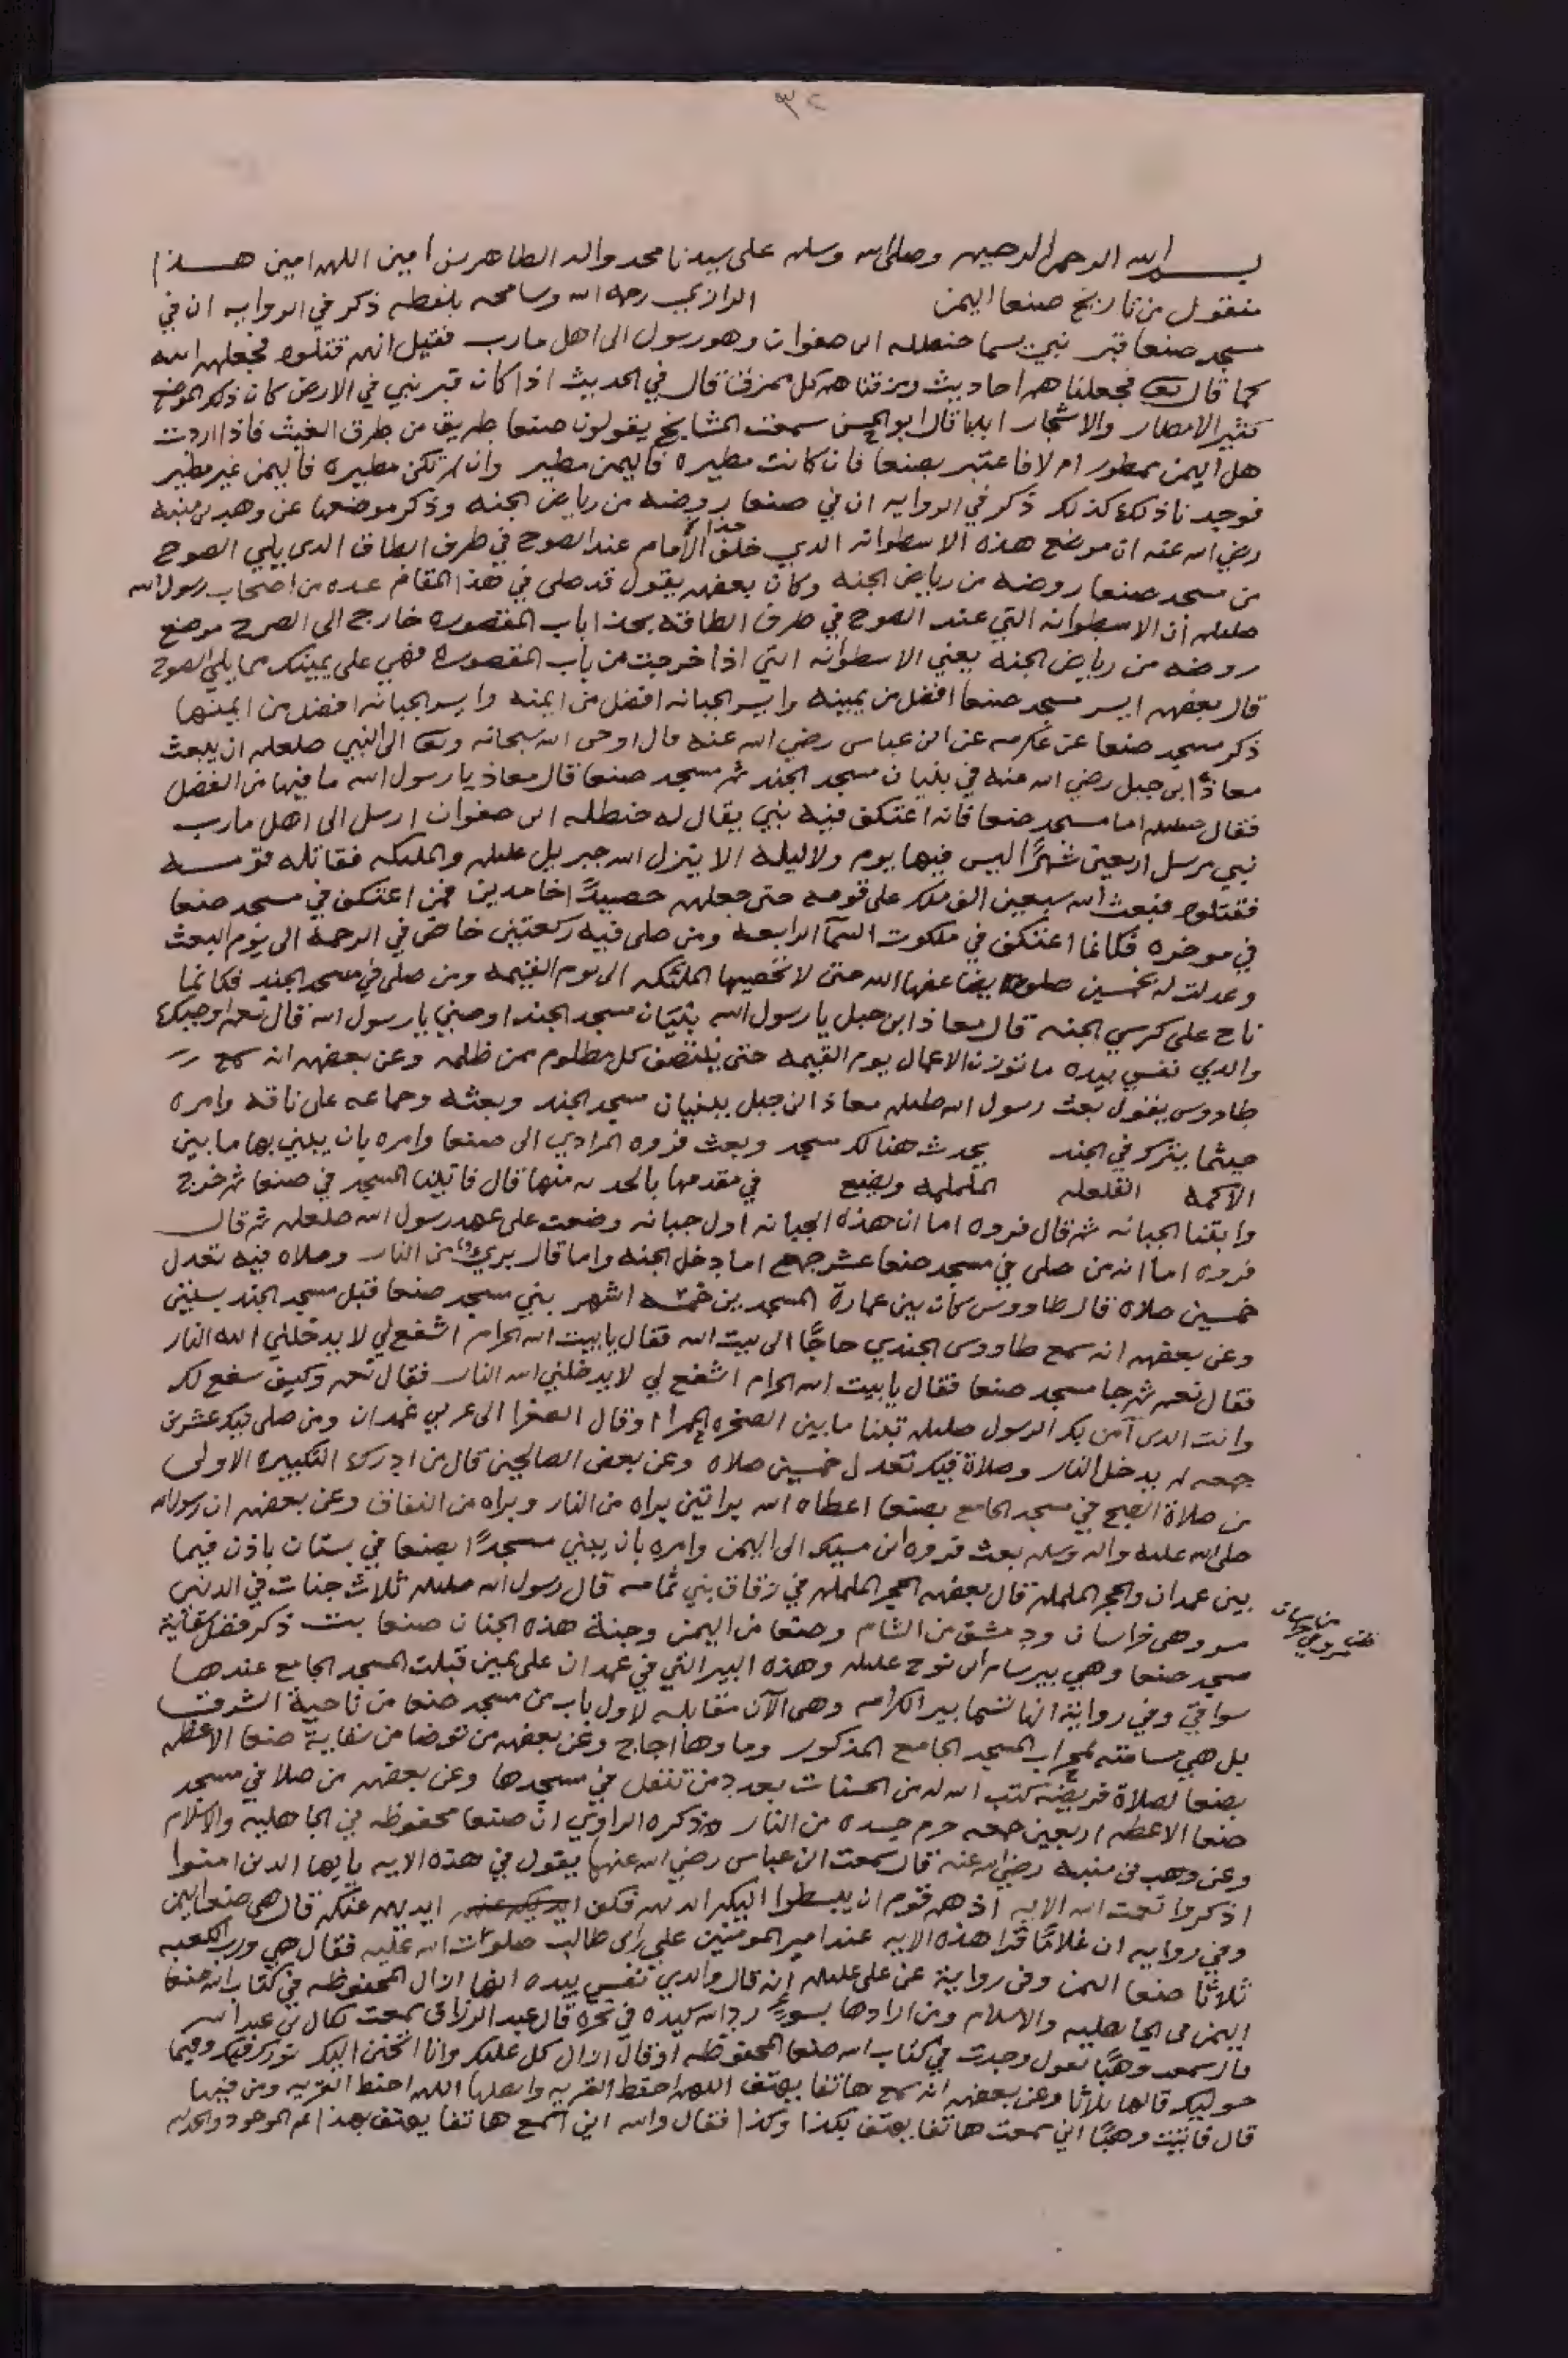 ٣٢
بسم الله الرحمن الرحيم وصلى الله وسلم على سيدنا محمد واله الطاهرين امين اللهم امين هذا
منقول من تاريخ صنعا اليمن الرازي رحمه الله وسامحه بلفظه ذكر في الروايه ان في
مسجد صنعا قبر نبي يسما حنظله ابن صفوان وهو رسول الى اهل مارب فقيل انهم قتلوه فجعلهم الله
كما قال تعا فجعلناهم احاديث ومزقناهم كل ممزق قال في الحديث اذا كان قبر نبي في الارض كان ذلك الموضع
كثير الامطار والاشجار ابدا قال ابو الحسن سمعت المشايخ يقولون صنعا طريق من طرق الغيث فاذا اردت
هل اليمن ممطور ام لا فاعتبر بصنعا فان كانت مطيره فاليمن مطير وان لم تكن مطيره فاليمن غير مطير
فوجدنا ذلك كذلك ذكر في الروايه ان في صنعا روضه من رياض الجنه وذكر موضعها عن وهب بن منبه
رضي الله عنه ان موضع هذه الاسطوانه الذي خلف الأمام عند الصوح في طرف الطاق الدي يلي الصوح
من مسجد صنعا روضه من رياض الجنه وكان بعضهم يقول قد صلى في هذا المقام عده من اصحاب رسول الله
صلعلم أن الاسطوانه التي عند الصوح في طرف الطاقه بحذا باب المقصوره خارج الى الصرح موضع
روضه من رياض الجنة يعني الاسطوانه التي اذا خرجت من باب المقصوره فهي على يمينك مما يلي الصوح
قال بعضهم ايسر مسجد صنعا افضل من يمينه وايسر الجبانه افضل من ايمنه وايسر الجبانه افضل من ايمنها
ذكر مسجد صنعا عن عكرمه عن ابن عباس رضي الله عنه قال اوحى الله سبحانه وتعا الى النبي صلعلم ان يبعث
معاذ ابن جبل رضي الله عنه في بنيان مسجد الجند ثم مسجد صنعا قال معاذ يا رسول الله ما فيها من الفضل
فقال صلعلم اما مسجد صنعا فانه اعتكف فيه نبي يقال له حنظله ابن صفوان ارسل الى اهل مارب
نبي مرسل اربعين شهرًا ليس فيها يوم ولا ليله الا ينزل الله جبريل عليلم والمليكه فقاتله قومه
فقتلوه فبعث الله سبعين الف ملك على قومه حتى جعلهم حصيدًا خامدين فمن اعتكف في مسجد صنعا
في موخره فكانما اعتكف في ملكوت السمآ الرابعه ومن صلى فيه ركعتين خاض في الرحمه الى يوم البعث
وعدلت له بخمسين صلوه يضاعفها الله حتى لا تحصيها الملئكه الى يوم القيمه ومن صلى في مسجد الجند فكانما
ناح على كرسي الجنه قال معاذ ابن جبل يا رسول الله بنيان مسجد الجند اوصني يا رسول الله قال نعم اوصيك
والدي نفسي بيده ما توزن الاعمال يوم القيمه حتى ينتصف كل مظلوم ممن ظلمه وعن بعضهم انه سمع
طاووس يقول بعث رسول الله صلعلم معاذ ابن جبل ببنيان مسجد الجند وبعثه وجماعه على ناقه وامره
حيثما يبترك في الجند يحدث هنالك مسجد وبعث فروه المرادي الى صنعا وامره بان يبني بها ما بين
الاكمه القلعله الململمه ويضع في مقدمها بالحد منها قال فاتينا المسجد في صنعا ثم خرج
وابقنا الجبانه ثم قال فروه اما ان هذه الجبانه اول جبانه وضعت على عهد رسول الله صلعلم ثم قال
فروه اما انه من صلى في مسجد صنعا عشر جمع اما دخل الجنه واما قال بري من النار وصلاه فيه تعدل
خمسين صلاه قال طاووس كان بين عمارة المسجدين خمسه اشهر بني مسجد صنعا قبل مسجد الجند بسنتين
وعن بعضهم انه سمع طاووس الجندي حاجًا الى بيت الله فقال يا بيت الله الحرام اشفع لي لا يدخلني الله النار
فقال نعم ثم جا مسجد صنعا فقال يا بيت الله الحرام اشفع لي لا يدخلني الله النار فقال نعم وكيف نشفع لك
وانت الدي آمن بك الرسول صلعلم قبلنا ما بين الصخره الحمرا او قال الصفرا الى غربي غمدان ومن صلى فيك عشرين
جمعه لم يدخل النار وصلاة فيك تعدل خمسين صلاه وعن بعض الصالحين قال من ادرك التكبيره الاولى
من صلاة الصبح في مسجد الجامع بصنعا اعطاه الله براتين براه من النار وبراه من النفاق وعن بعضهم ان رسول الله
صلى الله عليه واله وسلم بعث فروه ابن مسيك الى اليمن وامره بان يبني مسجدًا بصنعا في بستان باذن فيما
بين غمدان والحجر الململم قال بعضهم الحجر الململم في زقاق بني ثمامه قال رسول الله صلعلم ثلاث جنات في الدنيا
مرو وهي خراسان ودمشق من الشام وصنعا من اليمن وجنة هذه الجنان صنعا ذكر فضل سقاية
مسجد صنعا وهي بير سام ابن نوح عليلم وهذه البير التي في غمدان على يمين قبلت المسجد الجامع عندها
سواقي وفي رواية انها تسما بير الكرامه وهي الآن مقابله لاول باب من مسجد صنعا من ناحية الشوق
بل هي مسامته لمحراب المسجد الجامع المذكور وماوها اجاج وعن بعضهم من توضا من سقاية صنعا الاعظم
بصنعا لصلاة فريضة كتب الله له من الحسنات بعدد من تنفل في مسجدها وعن بعضهم من صلا في مسجد
صنعا الاعظم اربعين جمعه حرم جسده من النار وذكره الراوي ان صنعا محفوظه في الجاهليه والاسلام
وعن وهب بن منبه رضي الله عنه قال سمعت ابن عباس رضي الله عنهما يقول في هذه الايه يا يها الدين امنوا
اذكروا نعمت الله الايه اذ هم قوم ان يبسطوا اليكم ايديهم فكف ايديهم عنكم قال هي صنعا اليمن
وفي روايه ان غلامًا قرا هذه الايه عند امير المومنين علي ابن ابي طالب صلوات الله عليه فقال هي ورب الكعبه
ثلاثًا صنعا اليمن وفي رواية عن علي عليلم انه قال والدي نفسي بيده انها ازال المحفوظه في كتاب الله صنعا
اليمن في الجاهليه والاسلام ومن ارادها بسوء رد الله كيده في نحره قال عبد الرزاق سمعت بن عبد الله
قال سمعت وهبًا يقول وجدت في كتاب الله صنعا المحفوظه او قال ازال كل عليك وانا اتحنن اليك فيك وفيما
حوليك قالها ثلاثا وعن بعضهم انه سمع هاتفا يهتف اللهم احفظ القريه واهلها اللهم احفظ القريه ومن فيها
قال فاتيت وهبًا اني سمعت هاتفا يهتف بكذا وكذا فقال والله اني اسمع هاتفا يهتف بهذا تم الموجود والحمد لله